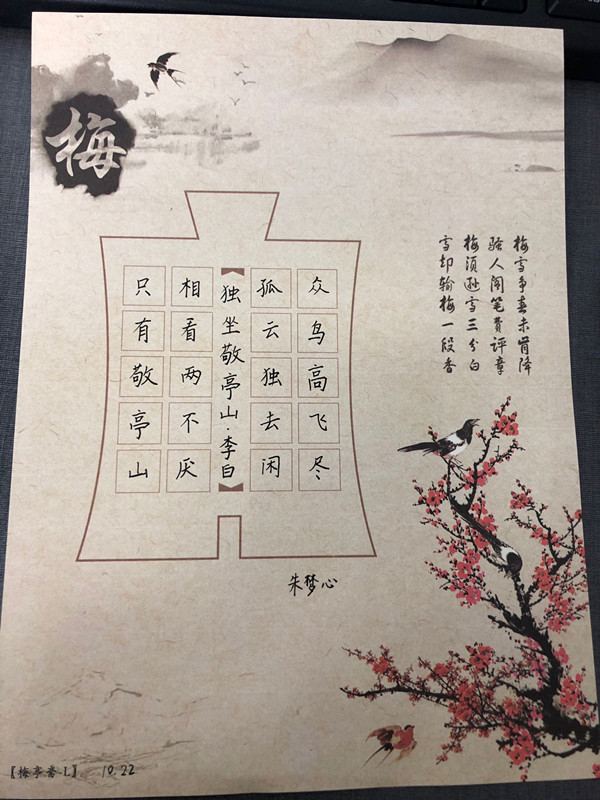 梅
梅雪争春未肯降
骚人阁笔费评章
梅须逊雪三分白
雪却输梅一段香
众鸟高飞尽
孤云独去闲
独坐敬亭山·李白
相看两不厌
只有敬亭山
朱梦心
10.22